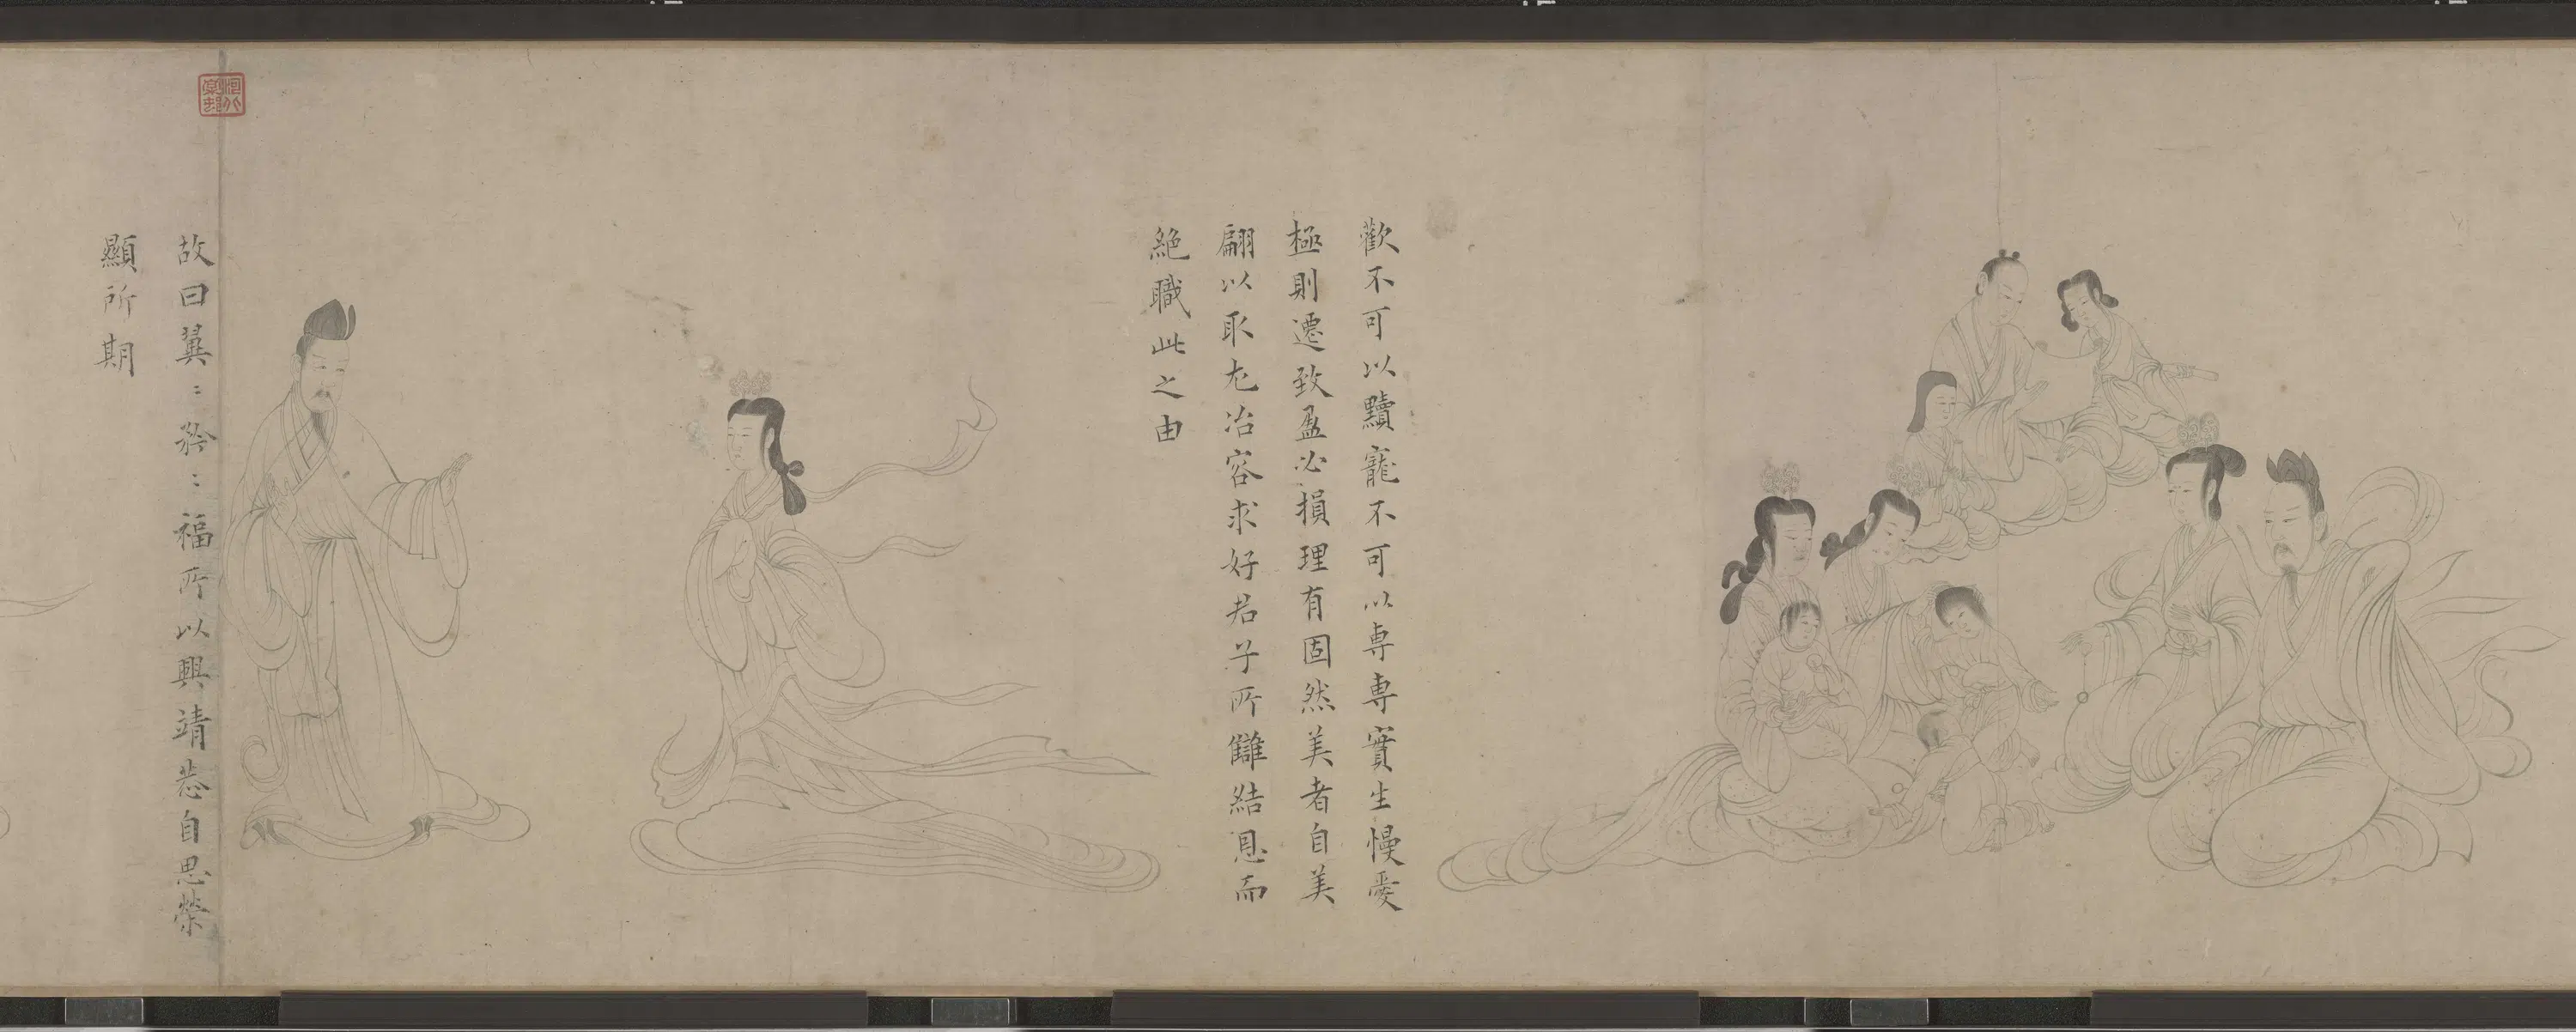 歡不可以黷寵不可以専専實生慢愛
極則遷致盈必損理有固然美者自美
翩以取尤冶容求好君子所讎結恩而
絶職此之由
故曰翼〻矜〻福所以興靖恭自思榮
顯所期
河北棠村